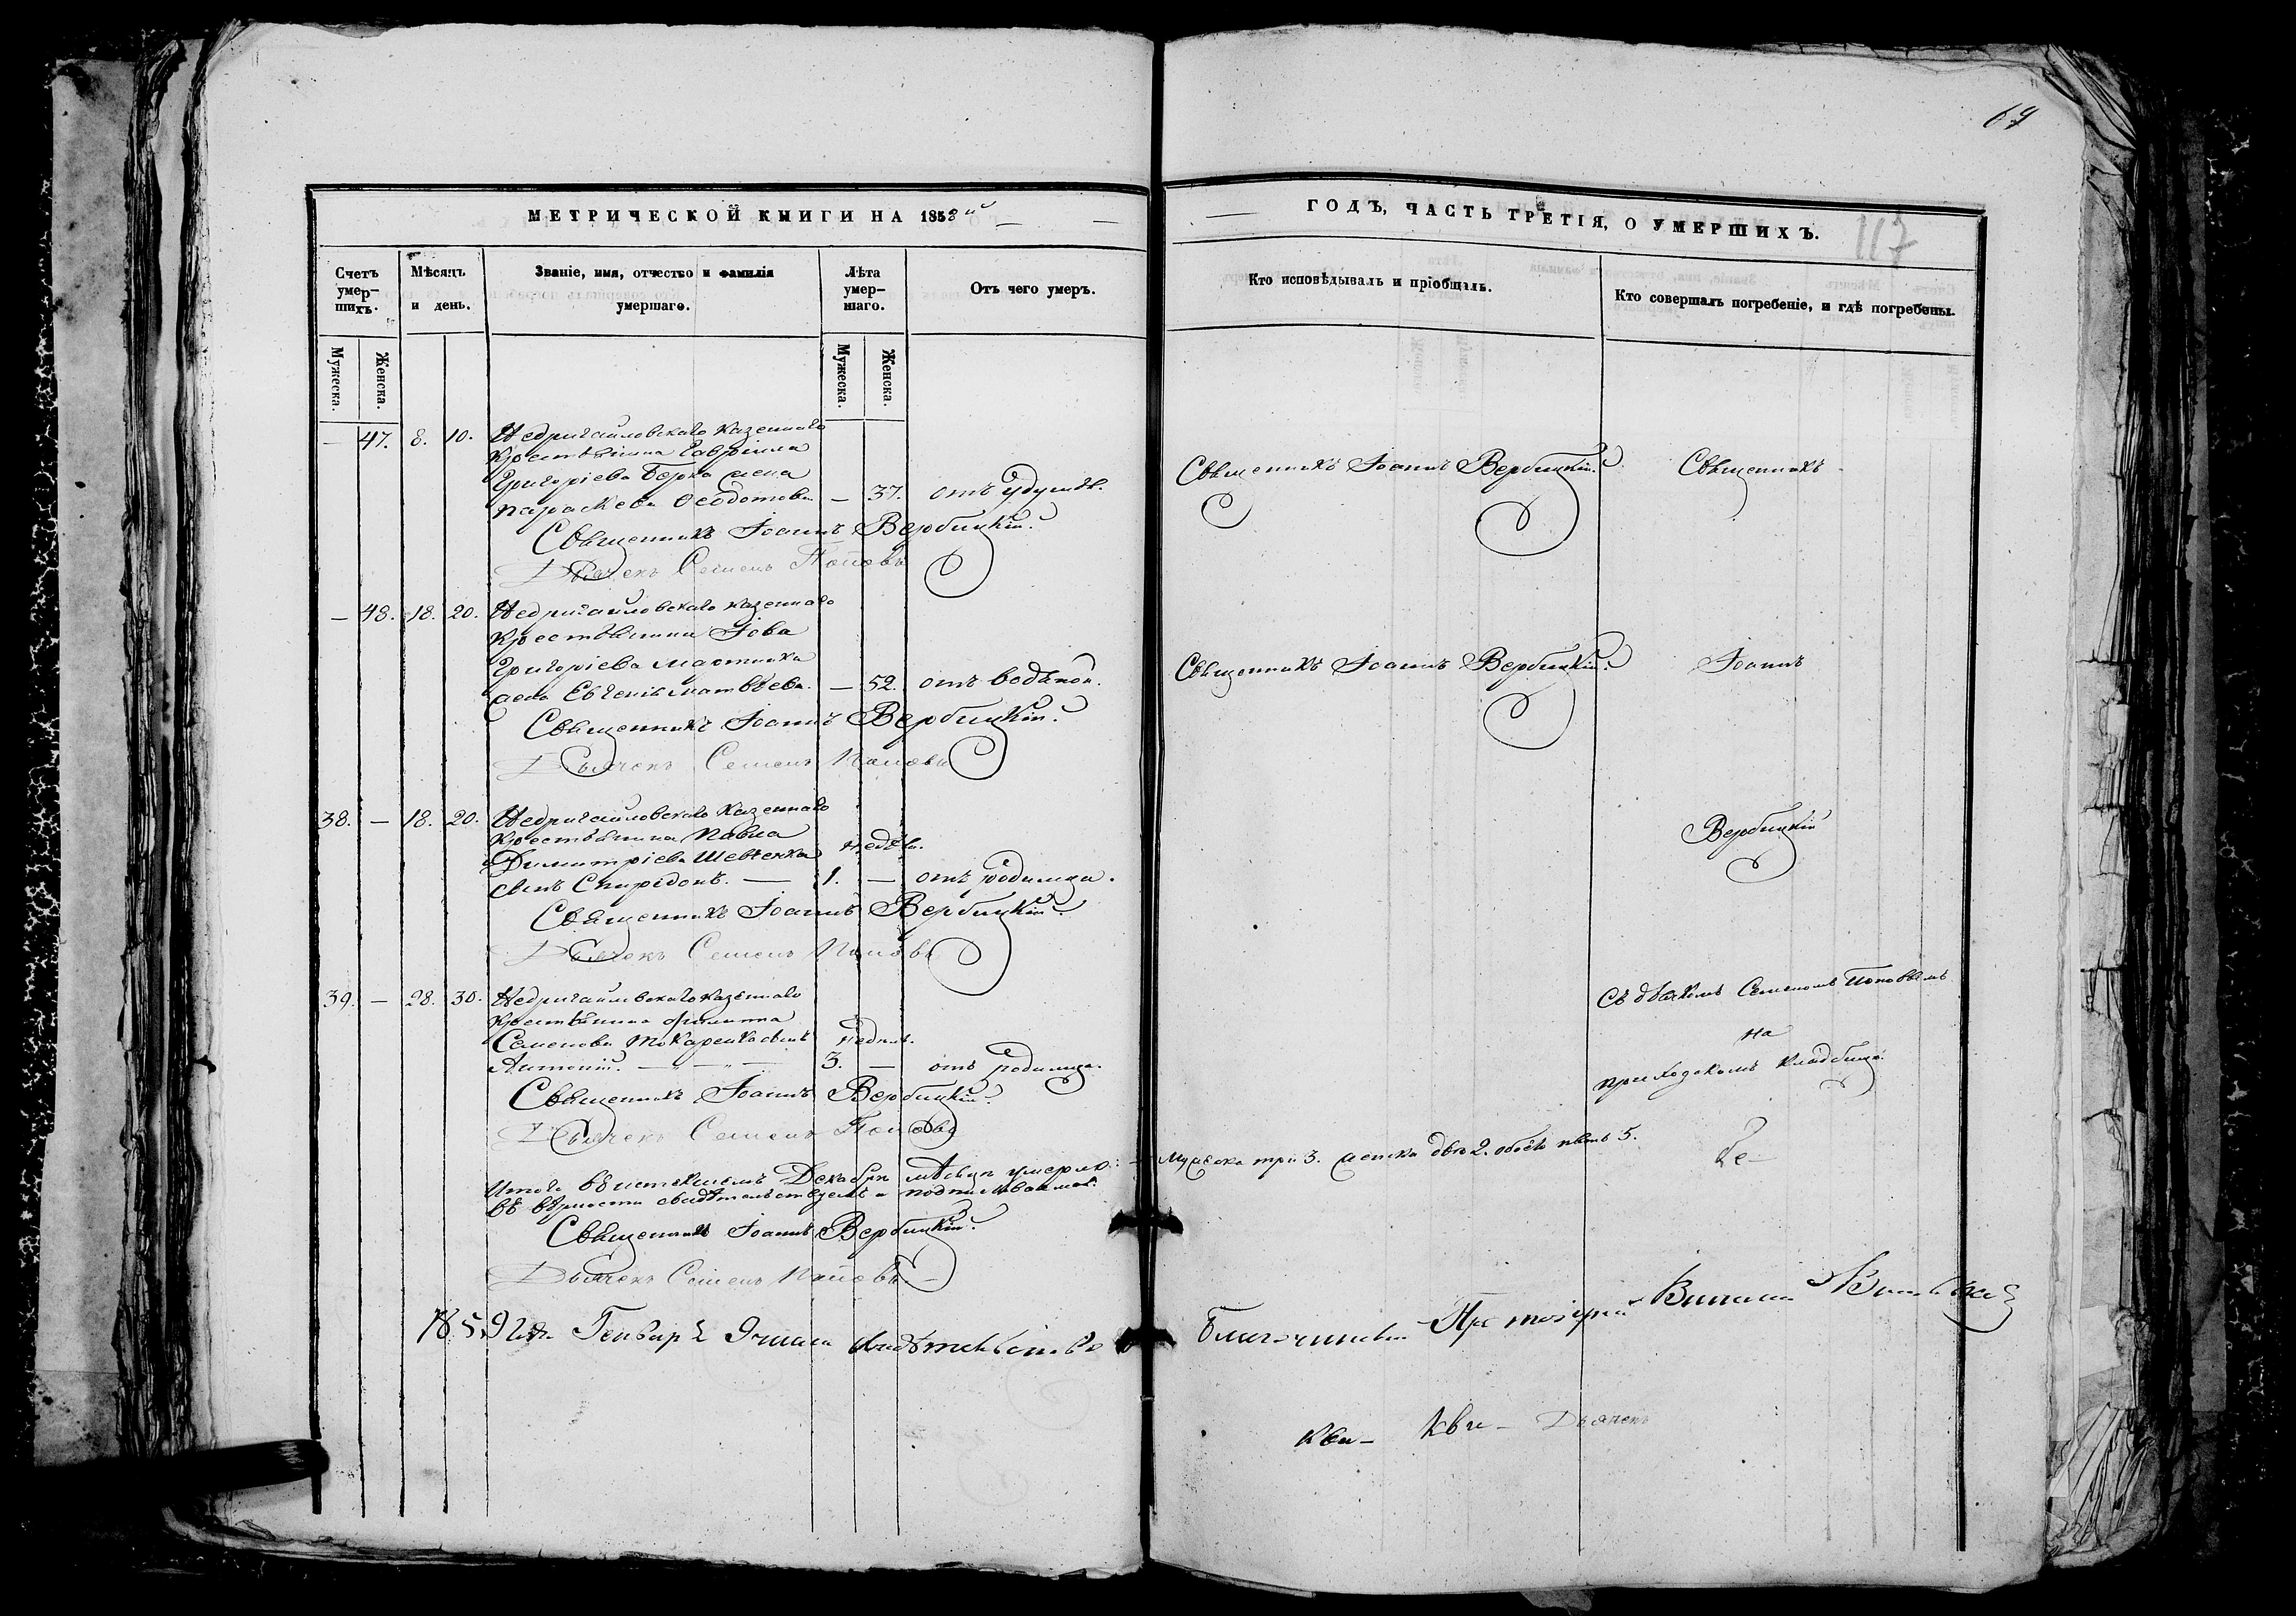 69
МЕТРИЧЕСКОЙ КНИГИ НА 1858й
ГОДЪ, ЧАСТЬ ТРЕТІЯ, О УМЕРШИХЪ.
117
Счетъ умер-шихъ.
Мѣсяцъ и день.
Званіе, имя, отчество и фамилія умершаго.
Лѣта умер-шаго.
Отъ чего умеръ.
Кто исповѣдывалъ и пріобщалъ.
Кто совершалъ погребеніе, и гдѣ погребены.
Мужеска.
Женска.
Мужеска.
Женска.
— 47. 8. 10. Недригайловскаго казеннаго
крестьянина Гавріила
Григоріева Берка жена
Параскева Ѳеодотова — 37. отъ удушья.
Священникъ Іоаннъ Вербицкій.
Священникъ
Священникъ Іоаннъ Вербицкій.
Дьячекъ Семенъ Поповъ
— 48. 18. 20. Недригайловскаго казеннаго
крестьянина Іова
Григоріева Мартинка
жена Евгенія Матвѣева. — 52. отъ водяной.
Священникъ Іоаннъ Вербицкій.
Іоаннъ
Священникъ Іоаннъ Вербицкій.
Дьячекъ Семенъ Поповъ
38. — 18. 20. Недригайловскаго казеннаго
крестьянина Павла
Димитріева Шевченка недѣли.
сынъ Спиридонъ. — 1. — отъ родимца.
Вербицкій
Священникъ Іоаннъ Вербицкій.
Дьячекъ Семенъ Поповъ
39. — 28. 30. Недригайловскаго казеннаго
крестьянина Филиппа
Семенова Токаренка сынъ недѣль.
Антоній. — „ — „ — 3. — отъ родимца.
Съ дьячкомъ Семеномъ Поповымъ
на
приходскомъ кладбищѣ.
Священникъ Іоаннъ Вербицкій.
Дьячекъ Семенъ Поповъ
Итого въ истекшемъ Декабрѣ мѣсяцѣ умерло: — мужеска три 3. женска двѣ 2. обоего пять 5.
въ вѣрности свидѣтельствуемъ и подписываемся.
Священникъ Іоаннъ Вербицкій.
Дьячекъ Семенъ Поповъ
1859 года Генваря 9 числа свидѣтельствовалъ
Благочинный Протоіерей
Дьячекъ